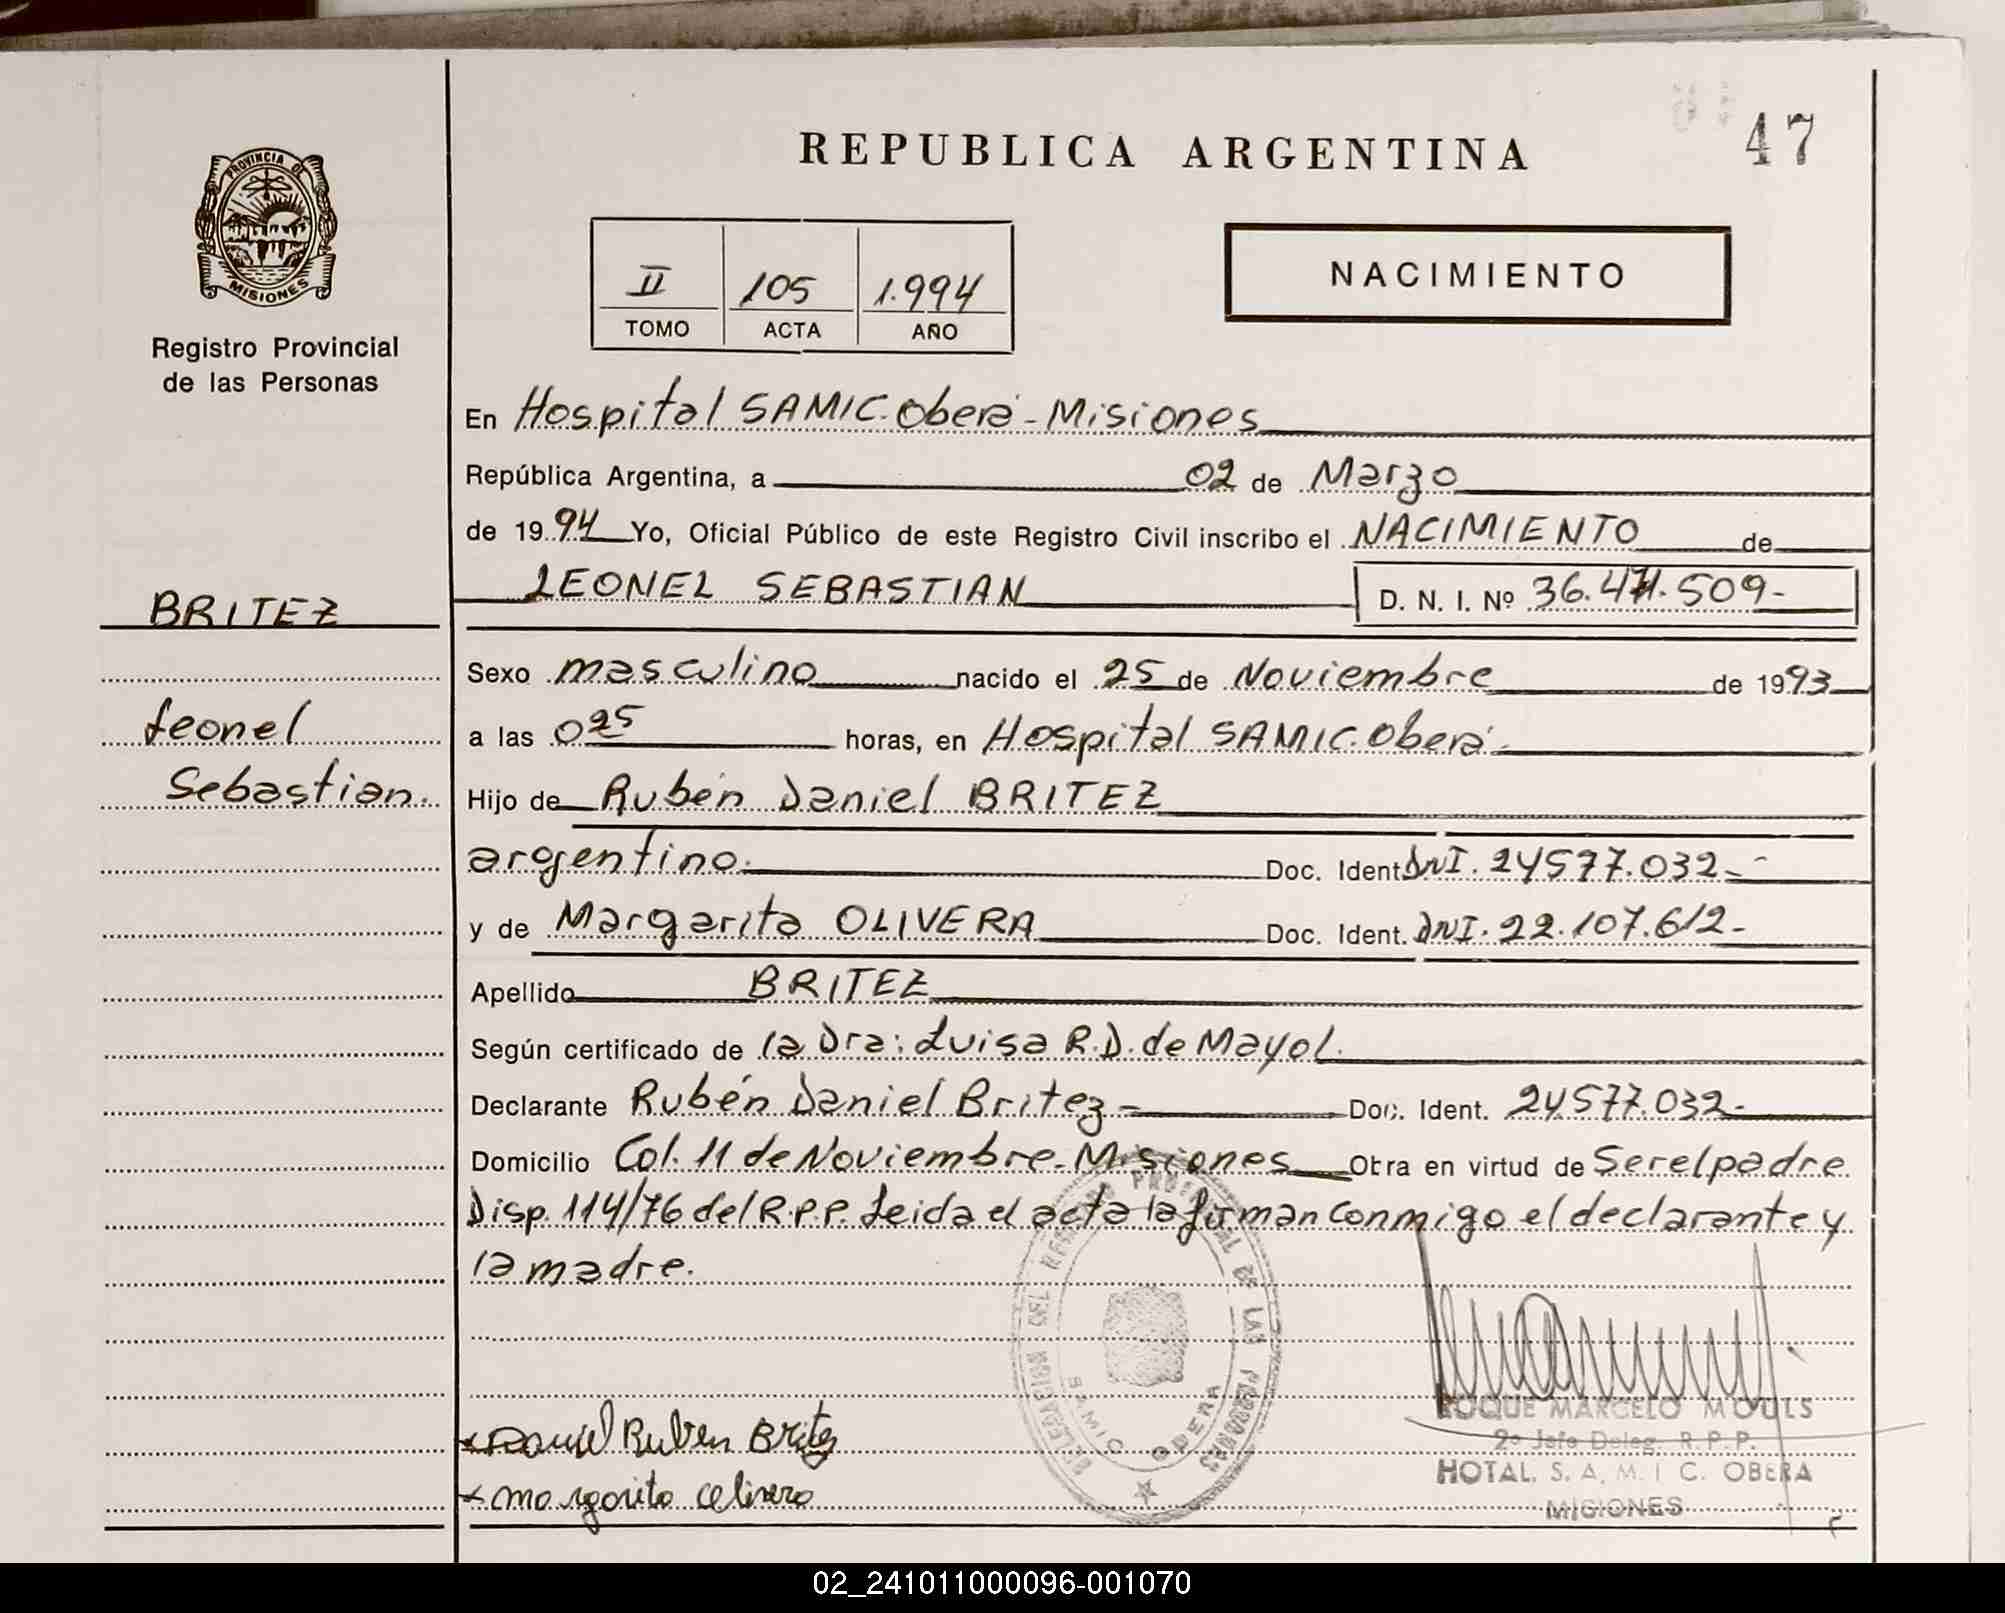 47
REPUBLICA ARGENTINA
PROVINCIA DE
MISIONES
Registro Provincial
de las Personas
II 105 1.994
TOMO ACTA AÑO
NACIMIENTO
En Hospital SAMIC. Oberá - Misiones
República Argentina, a 02 de Marzo
de 19 94 Yo, Oficial Público de este Registro Civil inscribo el NACIMIENTO de
LEONEL SEBASTIAN D. N. I. Nº
BRITEZ
Sexo masculino nacido el 25 de Noviembre de 1993
Leonel
a las 0²⁵ horas, en Hospital SAMIC. Oberá.
Sebastian.
Hijo de Rubén Daniel BRITEZ
argentino. Doc. Ident. DNI. 24577.032-
y de Margarita OLIVERA Doc. Ident. DNI. 22.107.612-
Apellido BRITEZ
Según certificado de la Dra: Luisa R.D. de Mayol.
Declarante Rubén Daniel Britez - Doc. Ident. 24577.032-
Domicilio Col. 11 de Noviembre - Misiones Obra en virtud de Ser el padre
Disp. 114/76 del R.P.P. Leida el acta la firman conmigo el declarante y
la madre.
DELEGACION DEL REGISTRO PROVINCIAL DE LAS PERSONAS
SAMIC OBERA
Daniel Ruben Britez
margarita olivera
ROQUE MARCELO MOULS
2º Jefe Deleg. R.P.P.
HOTAL. S. A. M. I C. OBERA
MISIONES
02_241011000096-001070